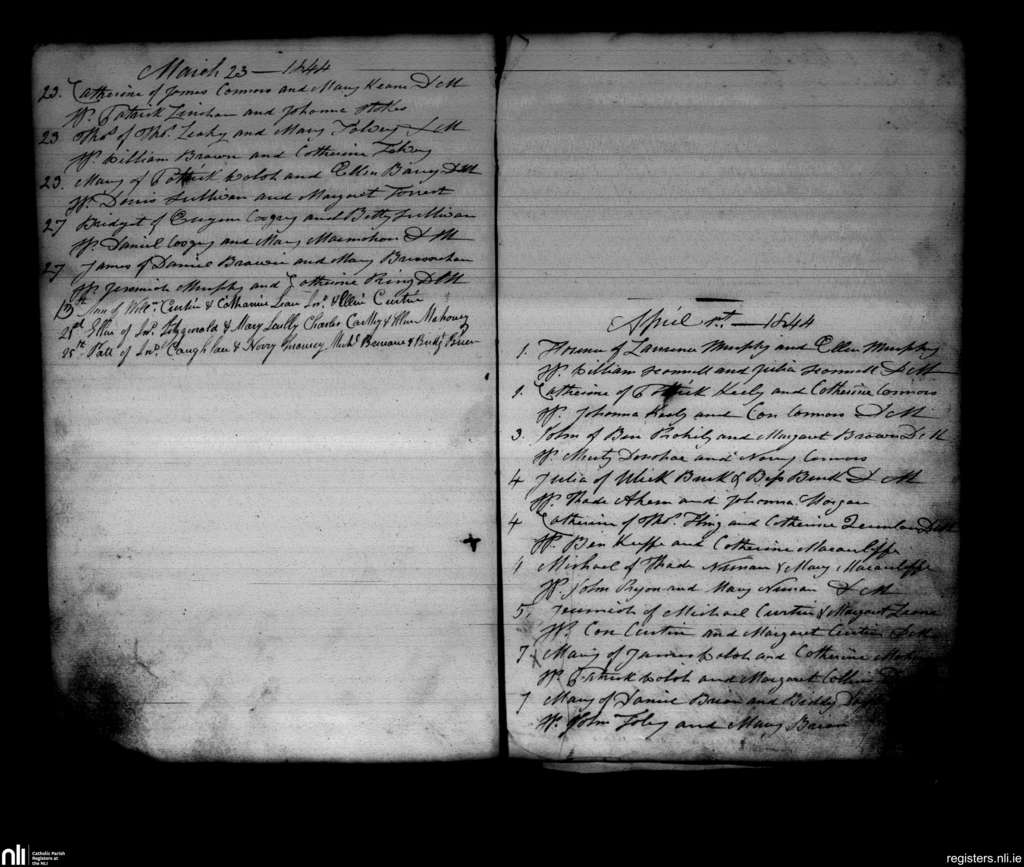 March 23 — 1844
23. Catherine of James Connors and Mary Keane D M
Ws. Patrick Linehan and Johanna Stokes
23 Thos. of Thos. Leahy and Mary D M
Ws. William Brown and Catherine
23. Mary of Patrick Walsh and Ellen Barry D M
Ws. Denis Sullivan and Margaret Forrest
27 Bridget of Eugene and Betty Sullivan
Ws. Daniel and Mary Macmahon D M
27 James of Daniel Brown and Mary
Ws. Jeremiah Murphy and Catherine Ring D M
13th of Willm. Curtin & Catharine Leane Jno. & Ellen Curtin
21st Ellen of Jno. Fitzgerald & Mary Scully Charles Carthy & Ellen Mahoney
25th Patt of Jno. Caughlan & Norry Michl. & Bridg. Brien
April 1st. — 1844
1. Florence of Laurence Murphy and Ellen Murphy
Ws. William and Julia D M
1. Catherine of Patrick Keely and Catherine Connors
Ws. Johanna Keely and Con Connors D M
3. John of Ben and Margaret Brown D M
Ws. Murty Donohoe and Norry Connors
4 Julia of Ulick Burk & Bess Burk D M
Ws. Thade Ahern and Johanna Horgan
4 Catherine of Thos. Fling and Catherine D M
Ws. Ben Keeffe and Catherine Macauliffe
4 Michael of Thade Nunan & Mary Macauliffe
Ws. John Ryan and Mary Nunan D M
5. Jeremiah of Michael Curtin & Margaret Leane
Ws. Con Curtin and Margaret Curtin D M
7 Mary of James Walsh and Catherine
Ws. Patrick Walsh and Margaret Collins
7 Mary of Daniel Brien and Biddy
Ws. John Foley and Mary Brien
nli
Catholic Parish
Registers at
the NLI
registers.nli.ie